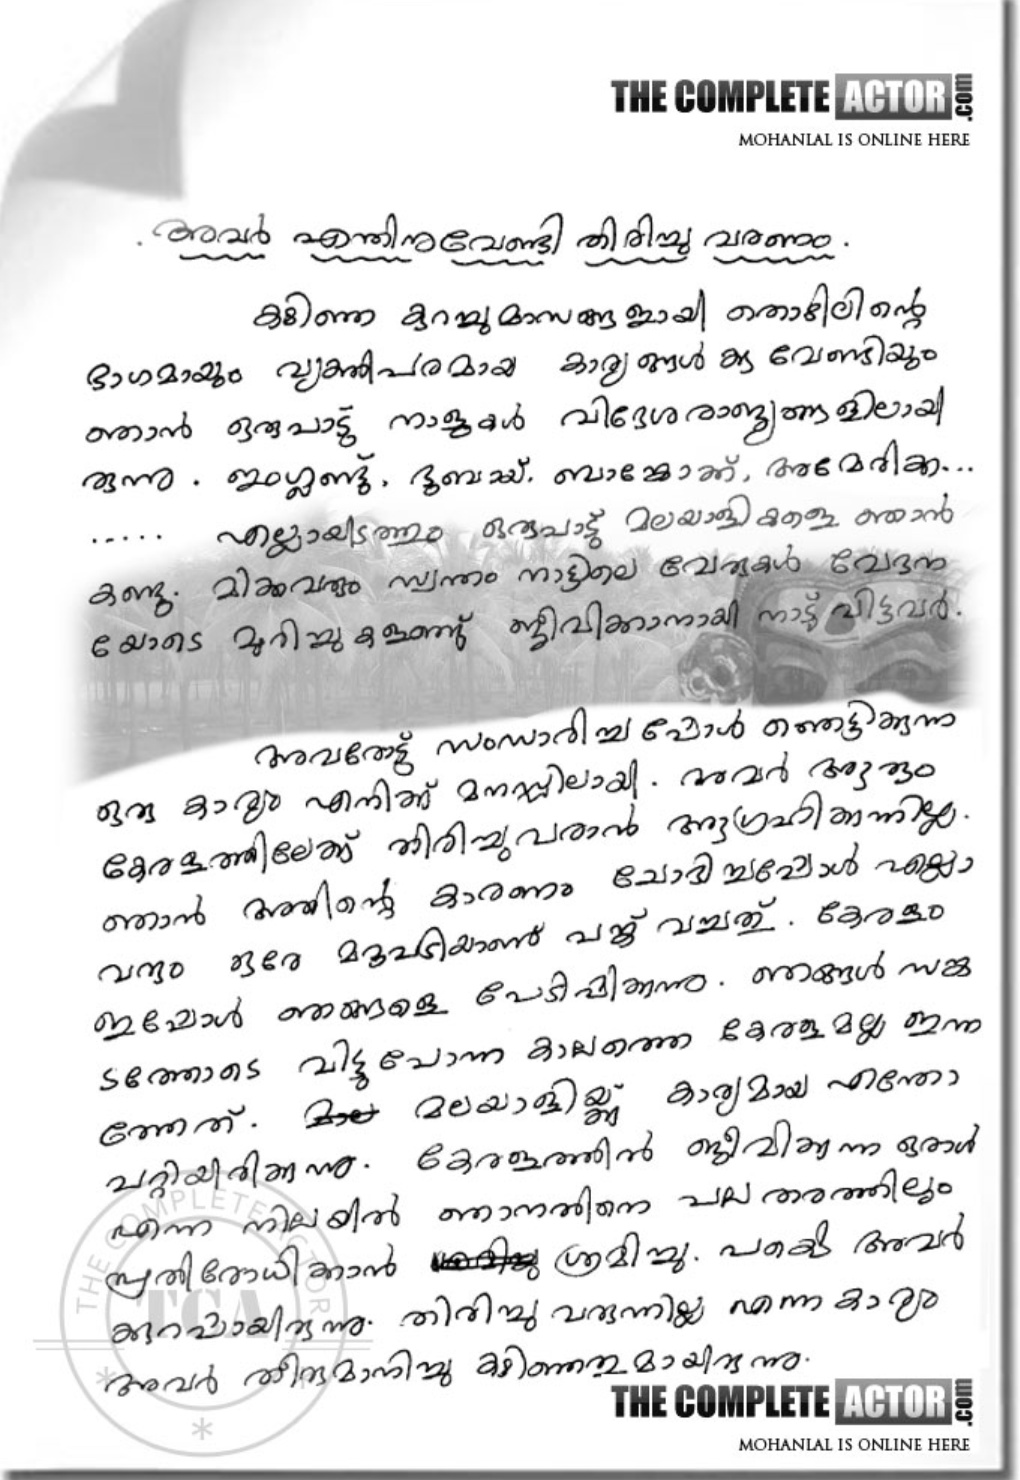 THE COMPLETE ACTOR .com
MOHANLAL IS ONLINE HERE
. അവർ എന്തിനുവേണ്ടി തിരിച്ചു വരണം .
കഴിഞ്ഞ കുറച്ചു മാസങ്ങളായി തൊഴിലിന്റെ
ഭാഗമായും വ്യക്തിപരമായ കാര്യങ്ങൾക്കു വേണ്ടിയും
ഞാൻ ഒരുപാട്ടു നാളുകൾ വിദേശരാജ്യങ്ങളിലായി
രുന്നു . ഇംഗ്ലണ്ട്, ദുബായ്, ബാങ്കോക്ക്, അമേരിക്ക...
..... എല്ലായിടത്തും ഒരുപാട്ടു മലയാളികളെ ഞാൻ
കണ്ടു. മിക്കവരും സ്വന്തം നാട്ടിലെ വേരുകൾ വേദന
യോടെ മുറിച്ചുകളഞ്ഞ് ജീവിക്കാനായി നാട് വിട്ടവർ.
അവരോട്ടു സംസാരിച്ചപ്പോൾ ഞെട്ടിക്കുന്ന
ഒരു കാര്യം എനിക്ക് മനസ്സിലായി . അവർ ആരും
കേരളത്തിലേക്ക് തിരിച്ചുവരാൻ ആഗ്രഹിക്കുന്നില്ല.
ഞാൻ അതിന്റെ കാരണം ചോദിച്ചപ്പോൾ എല്ലാ
വരും ഒരേ മറുപടിയാണ് പങ്ക് വച്ചത് . കേരളം
ഇപ്പോൾ ഞങ്ങളെ പേടിപ്പിക്കുന്നു . ഞങ്ങൾ സങ്ക
ടത്തോടെ വിട്ടുപോന്ന കാലത്തെ കേരളമല്ല ഇന്ന
ത്തേത് . മലയാളിയ്ക്ക് കാര്യമായ എന്തോ
പറ്റിയിരിക്കുന്നു . കേരളത്തിൽ ജീവിക്കുന്ന ഒരാൾ
എന്ന നിലയിൽ ഞാനതിനെ പല തരത്തിലും
പ്രതിരോധിക്കാൻ ശ്രമിച്ചു . പക്ഷെ അവർ
ഉറപ്പായിരുന്നു. തിരിച്ചു വരുന്നില്ല എന്ന കാര്യം
അവർ തീരുമാനിച്ചു കഴിഞ്ഞതുമായിരുന്നു.
THE COMPLETE ACTOR
TCA
THE COMPLETE ACTOR .com
MOHANLAL IS ONLINE HERE